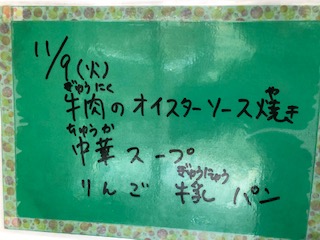 11/9(火)
ぎゅうにく や
牛肉のオイスターソース焼き
ちゅうか
中華スープ
ぎゅうにゅう
りんご 牛乳 パン